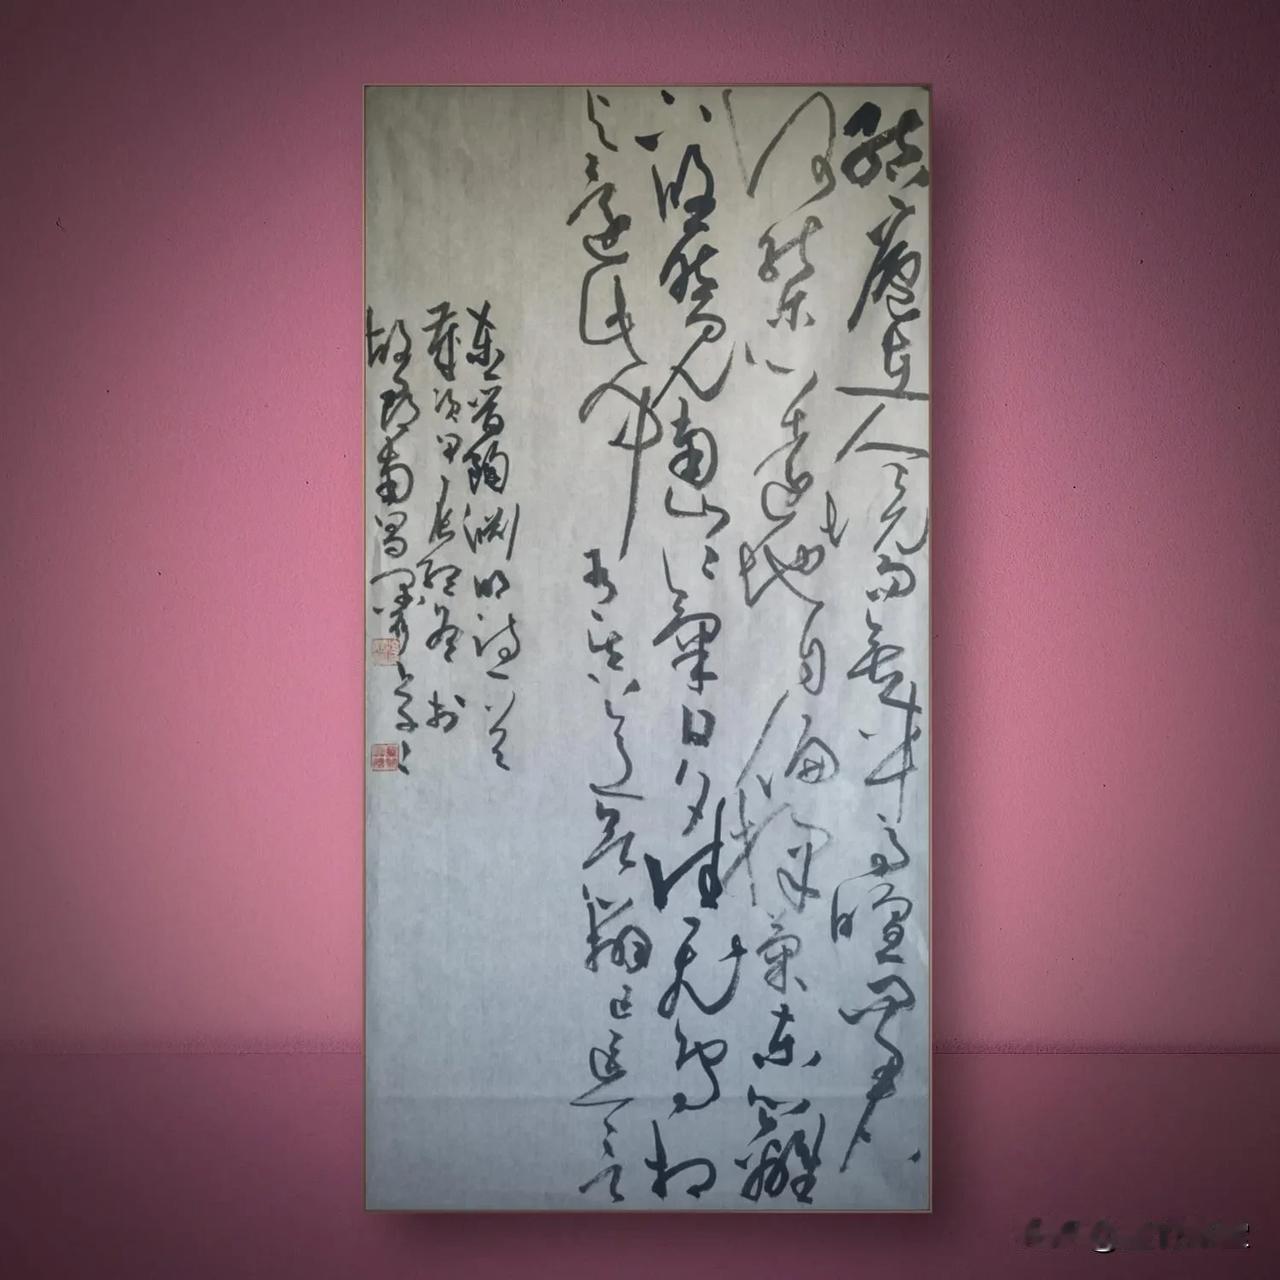 結廬在人境而無車馬喧問君
何能尔心遠地自偏採菊東籬
下悠然見南山山氣日夕佳飛鳥相
与還此中有真意欲辯已忘言
東晉陶淵明詩一首
歲次甲辰 於
故郡南昌